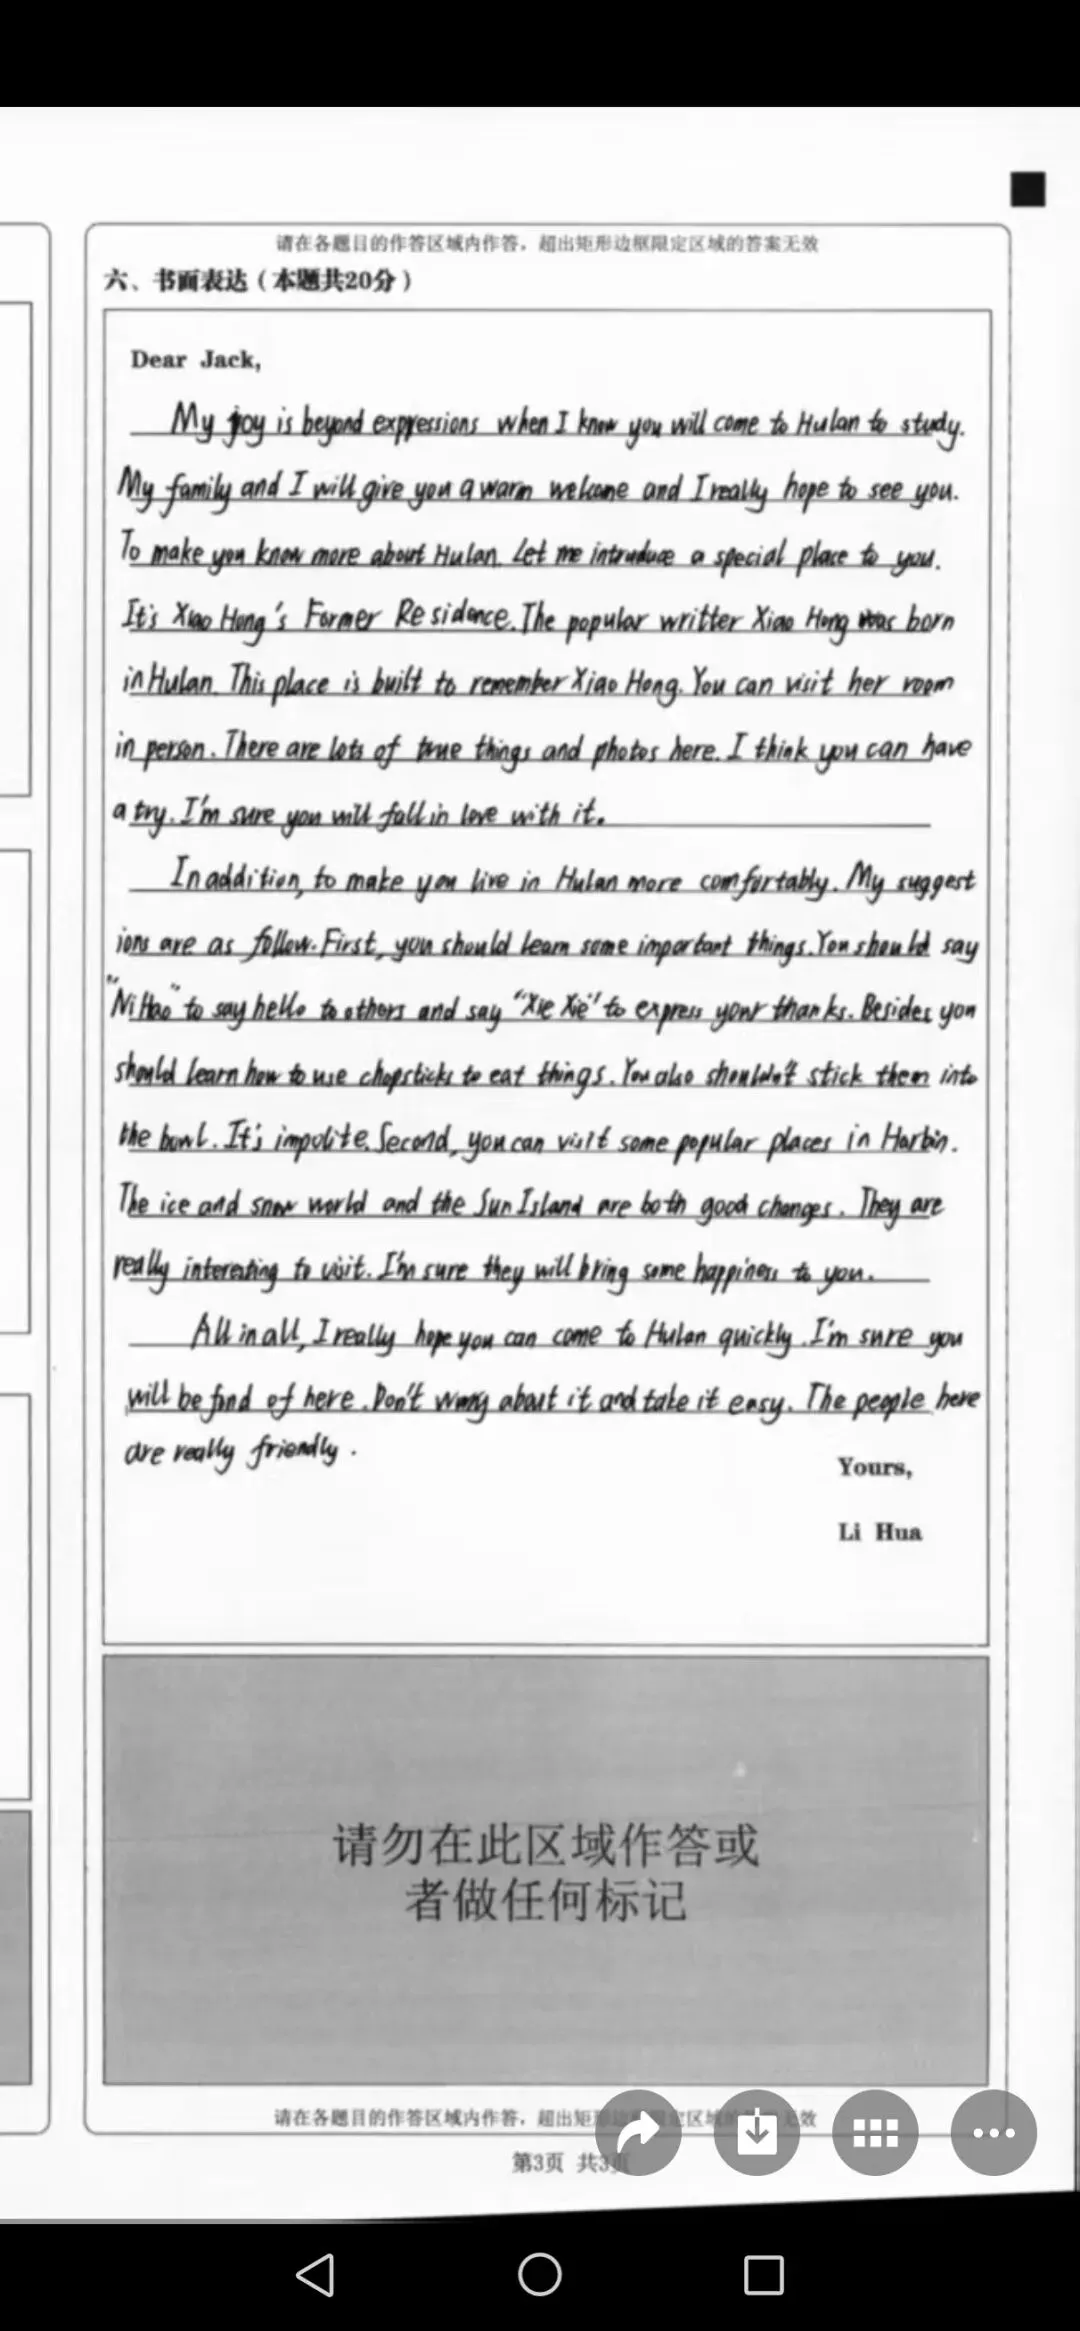 请在各题目的作答区域内作答，超出矩形边框限定区域的答案无效
六、书面表达（本题共20分）
Dear Jack,
My joy is beyond expressions when I know you will come to Hulan to study.
My family and I will give you a warm welcome and I really hope to see you.
To make you know more about Hulan. Let me intruduce a special place to you.
It's Xiao Hong's Former Residence. The popular writter Xiao Hong was born
in Hulan. This place is built to remember Xiao Hong. You can visit her room
in person. There are lots of true things and photos here. I think you can have
a try. I'm sure you will fall in love with it.
In addition, to make you live in Hulan more comfortably. My suggest
ions are as follow. First, you should learn some important things. You should say
"Ni Hao" to say hello to others and say "Xie Xie" to express your thanks. Besides you
should learn how to use chopsticks to eat things. You also shouldn't stick them into
the bowl. It's impolite. Second, you can visit some popular places in Harbin.
The ice and snow world and the Sun Island are both good changes. They are
really interesting to visit. I'm sure they will bring some happiness to you.
All in all, I really hope you can come to Hulan quickly. I'm sure you
will be fond of here. Don't worry about it and take it easy. The people here
are really friendly.
Yours,
Li Hua
请勿在此区域作答或
者做任何标记
请在各题目的作答区域内作答，超出矩形边框限定区域的答案无效
第3页 共3页